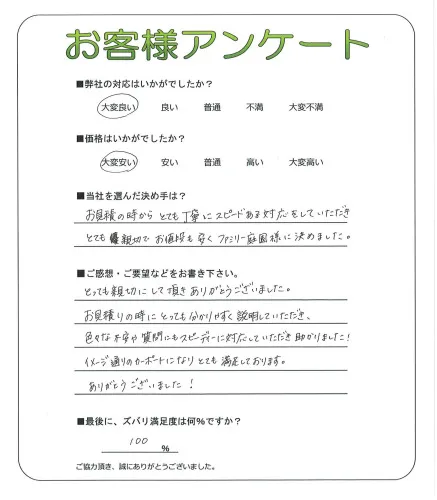 お客様アンケート
■弊社の対応はいかがでしたか？
大変良い 良い 普通 不満 大変不満
■価格はいかがでしたか？
大変安い 安い 普通 高い 大変高い
■当社を選んだ決め手は？
お見積の時から とても丁寧にスピードある対応をしていただき
とても 親切で お値段も 安く ファミリー庭園様に 決めました。
■ご感想・ご要望などをお書き下さい。
とっても親切にして頂き ありがとうございました。
お見積りの時に とっても分かりやすく 説明していただき、
色々な不安や質問にもスピーディーに対応していただき 助かりました！
イメージ通りのカーポートになり とても 満足しております。
ありがとうございました！
■最後に、ズバリ満足度は何％ですか？
100 ％
ご協力頂き、誠にありがとうございました。